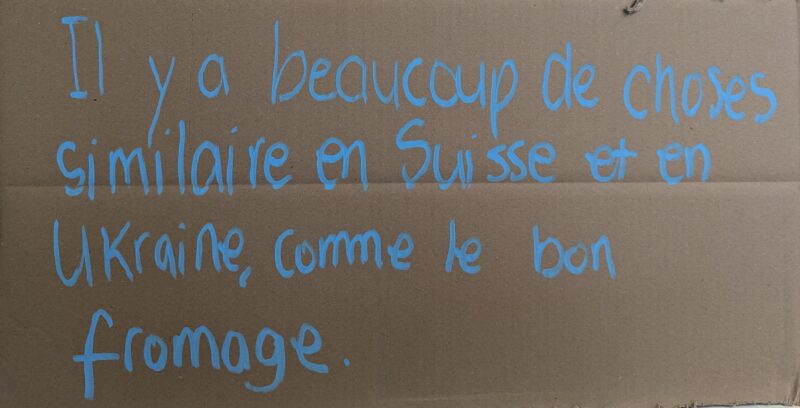 Il y a beaucoup de choses
similaire en Suisse et en
Ukraine, comme le bon
fromage.